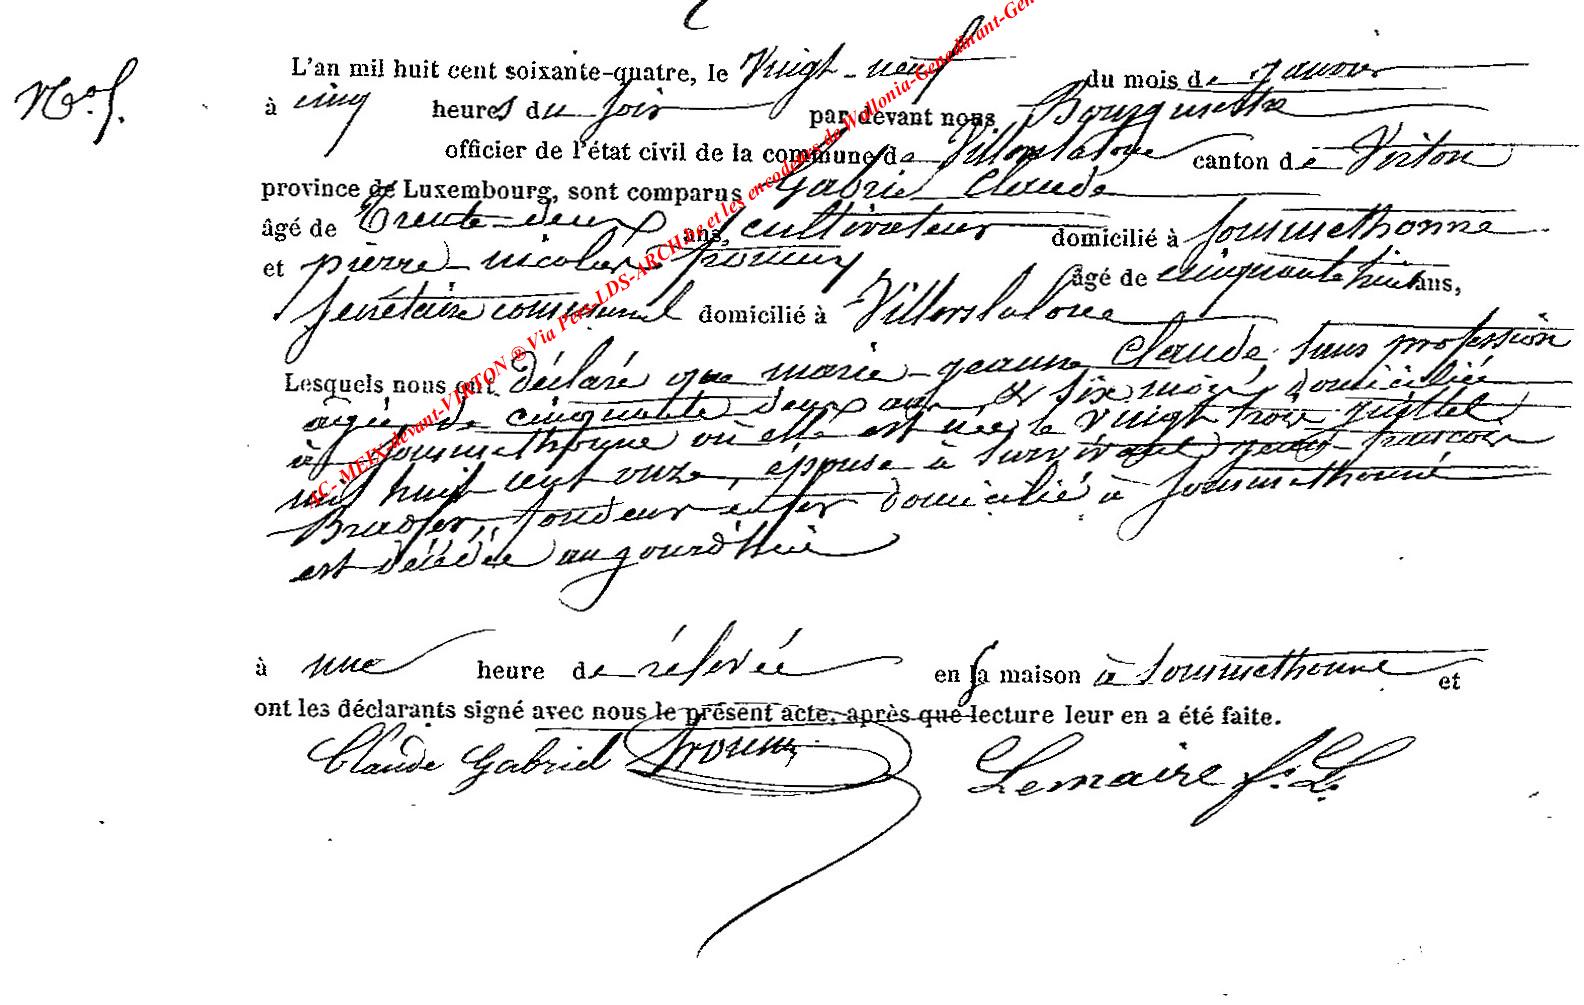 N°
L'an mil huit cent soixante-quatre, le Vingt-neuf du mois de janvier
à cinq heures du soir par devant nous Bourguestre
officier de l'état civil de la commune de Villerslaloue canton de Virton
province de Luxembourg, sont comparus Gabriel Claude
âgé de Trente-deux ans, cultivateur domicilié à Sommethonne
et pierre nicolas âgé de cinquante huit ans,
secrétaire communal domicilié à Villerslaloue
Lesquels nous ont déclaré que marie-jeanne Claude, sans profession
agée de cinquante deux ans & six mois, domiciliée
à Sommethonne où elle est née le vingt trois juillet
mil huit cent onze, épouse à survivant jean-francois
fondeur en fer domicilié à Sommethonne
est décédée aujourd'hui
à une heure de rélevée en sa maison à Sommethonne et
ont les déclarants signé avec nous le présent acte, après que lecture leur en a été faite.
Claude Gabriel Lemaire f. L.
AC- MEIX-devant-VIRTON ® Via Pers-LDS-ARCH.be et les encodeurs de Wallonia-Genedurant-Gen